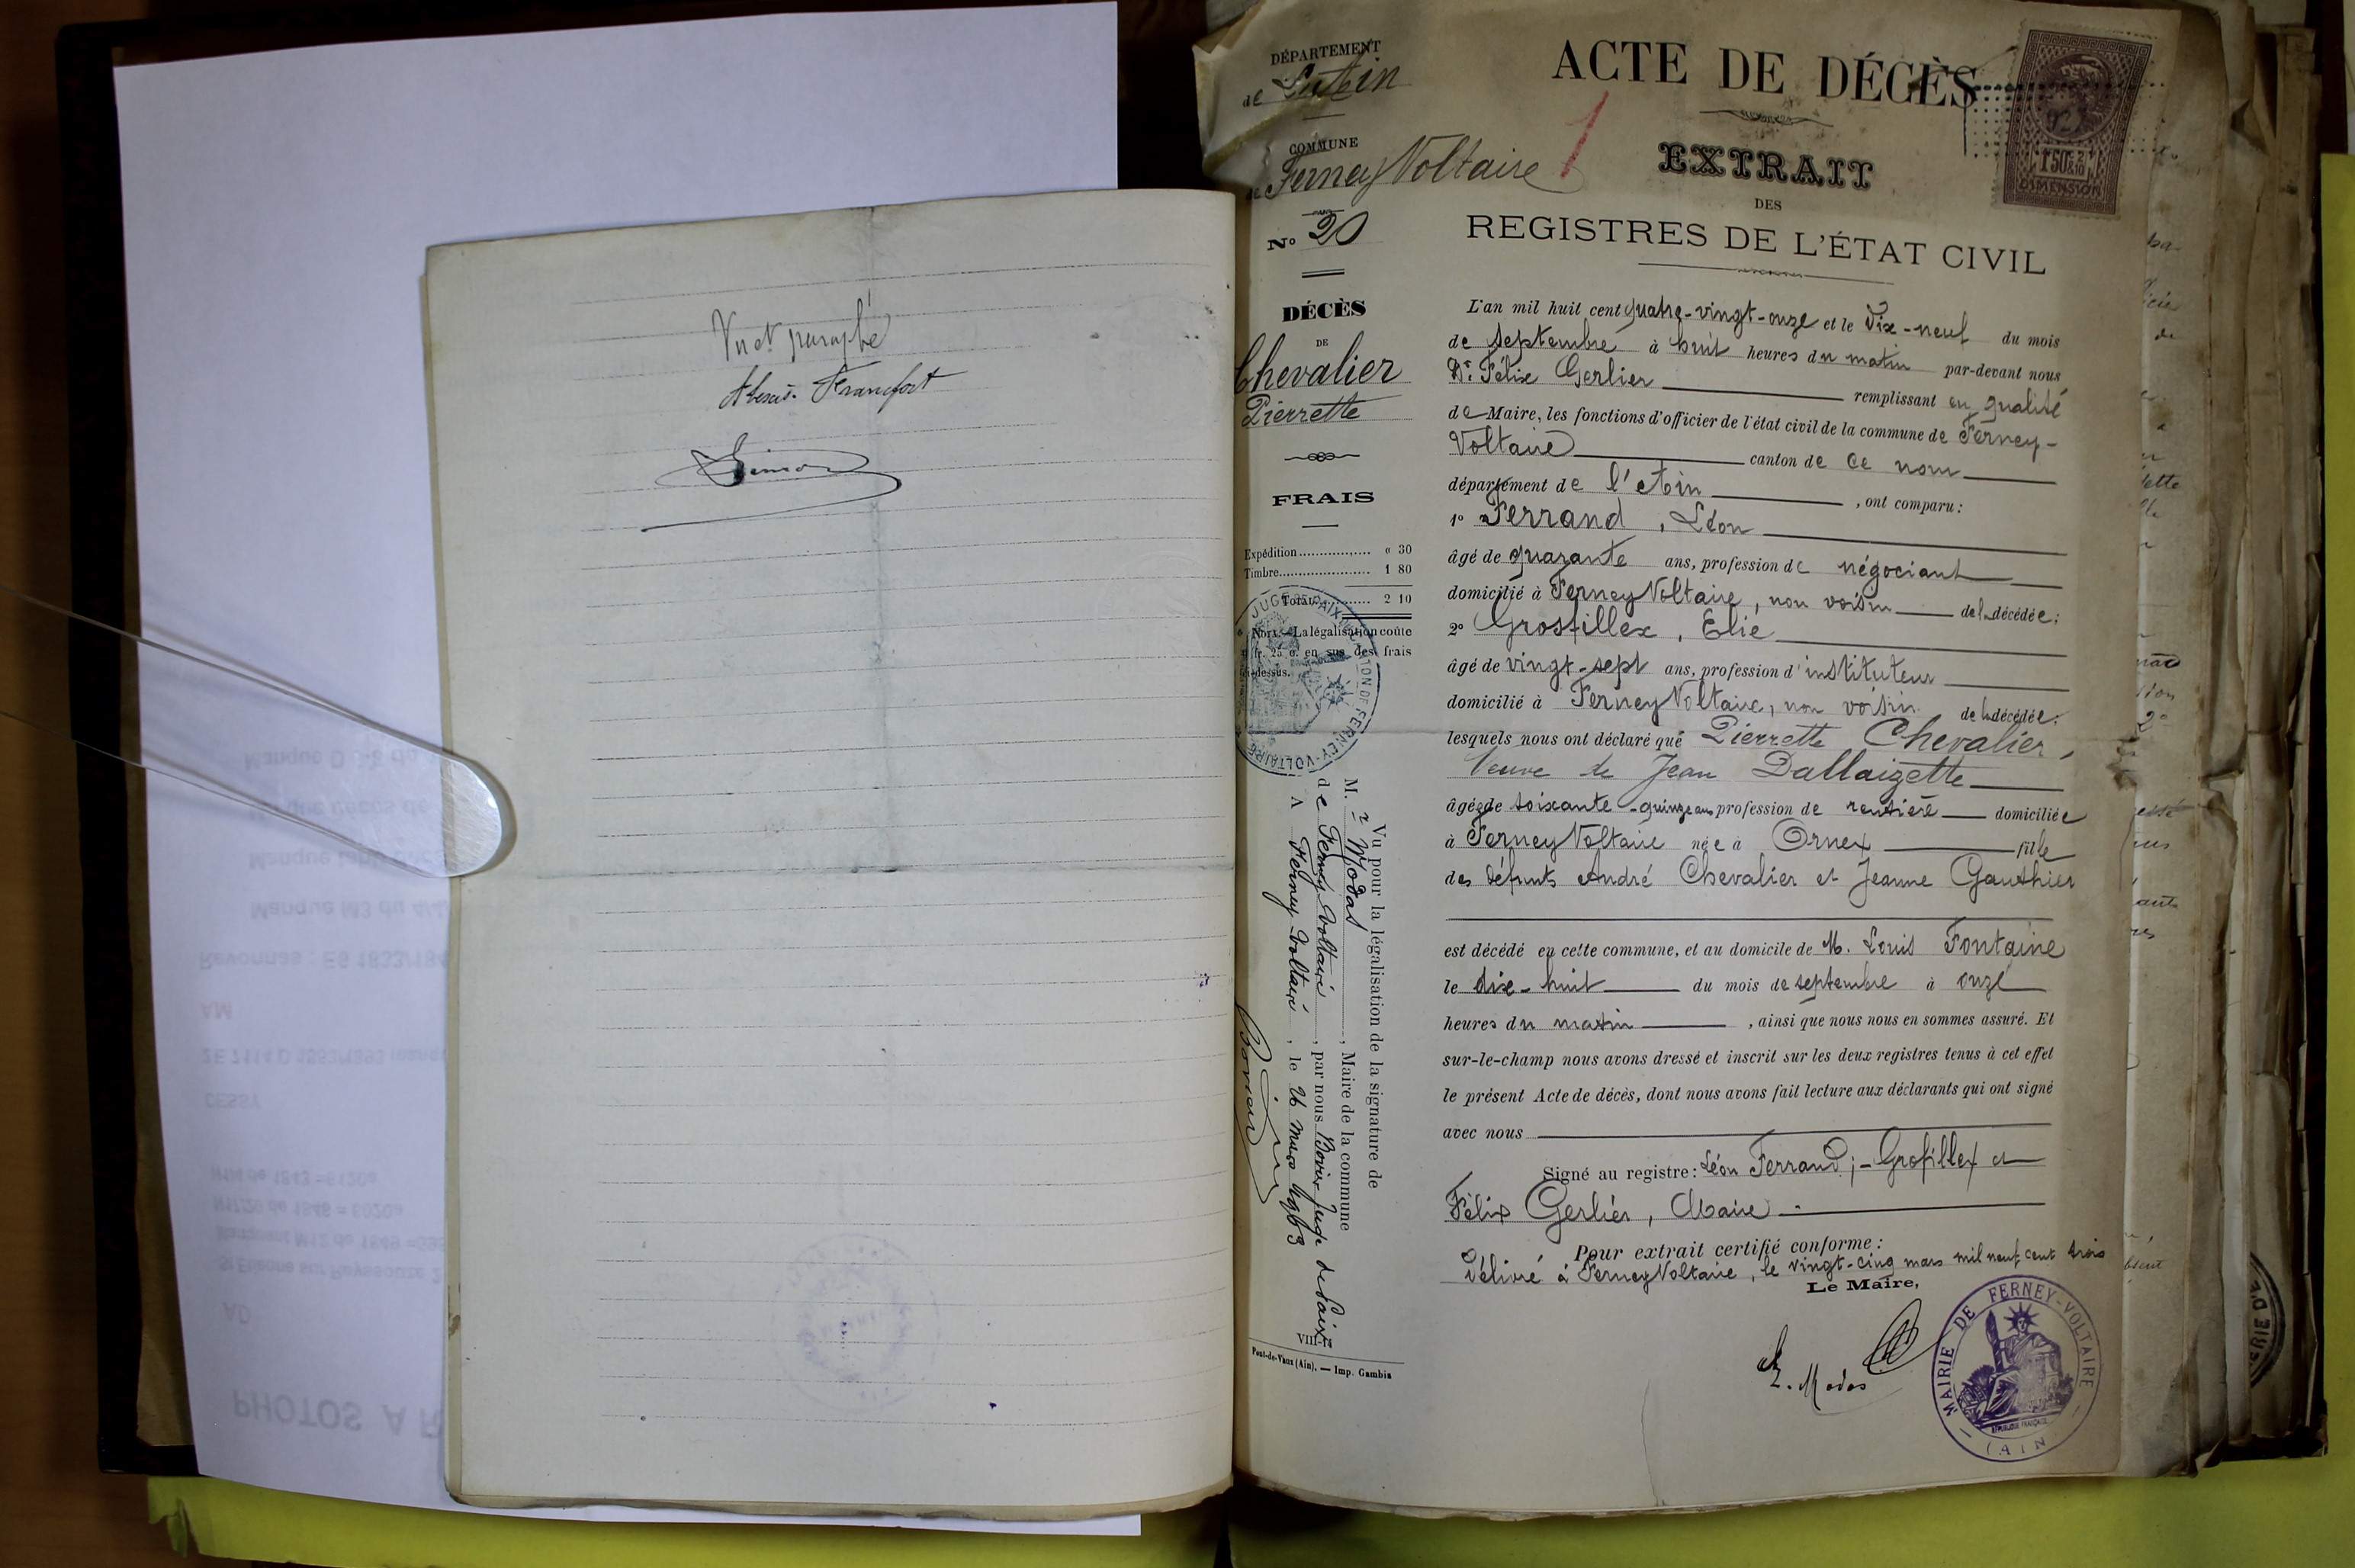 Vu et paraphé
Francfort
Simon
DÉPARTEMENT
de L'Ain
COMMUNE
de Ferney Voltaire
1
No 20
DÉCÈS
DE
Chevalier
Pierrette
FRAIS
Expédition « 30
Timbre 1 80
Total 2 10
NOTA.—La légalisation coûte
fr. 25 c. en sus des frais
ci-dessus.
JUGE DE PAIX FERNEY-VOLTAIRE
Vu pour la légalisation de la signature de
M. r Modas, Maire de la commune
de Ferney Voltaire, par nous Bovier Juge de Paix
A Ferney-Voltaire, le 26 mars 1903
Bovier
VIII-12
Pont-de-Vaux (Ain). — Imp. Gambis
ACTE DE DÉCÈS
EXTRAIT
DES
REGISTRES DE L'ÉTAT CIVIL
1f50c 2/10
DIMENSION
L'an mil huit cent quatre-vingt-onze et le Dix-neuf du mois
de septembre à huit heures du matin par-devant nous,
Dr. Félix Gerlier remplissant en qualité
de Maire, les fonctions d'officier de l'état civil de la commune de Ferney-
Voltaire canton de ce nom
département de l'Ain, ont comparu:
1o Ferrand, Léon
âgé de quarante ans, profession de négociant
domicilié à Ferney Voltaire, non voisin de la décédée;
2o Grosfillex, Elie
âgé de vingt-sept ans, profession d'instituteur
domicilié à Ferney Voltaire, non voisin de la décédée;
lesquels nous ont déclaré que Pierrette Chevalier,
Veuve de Jean Dallaizette
âgée de soixante-quinze ans profession de rentière domiciliée
à Ferney Voltaire née à Ornex fille
des défunts André Chevalier et Jeanne Gauthier
est décédé en cette commune, et au domicile de M. Louis Fontaine
le dix-huit du mois de septembre à onze
heures du matin, ainsi que nous nous en sommes assuré. Et
sur-le-champ nous avons dressé et inscrit sur les deux registres tenus à cet effet
le présent Acte de décès, dont nous avons fait lecture aux déclarants qui ont signé
avec nous
Signé au registre: Léon Ferrand; - Grosfillex et
Félix Gerlier, Maire.
Pour extrait certifié conforme:
Délivré à Ferney Voltaire, le vingt-cinq mars mil neuf cent trois
Le Maire,
Modas
MAIRIE DE FERNEY-VOLTAIRE
RÉPUBLIQUE FRANÇAISE
(AIN)